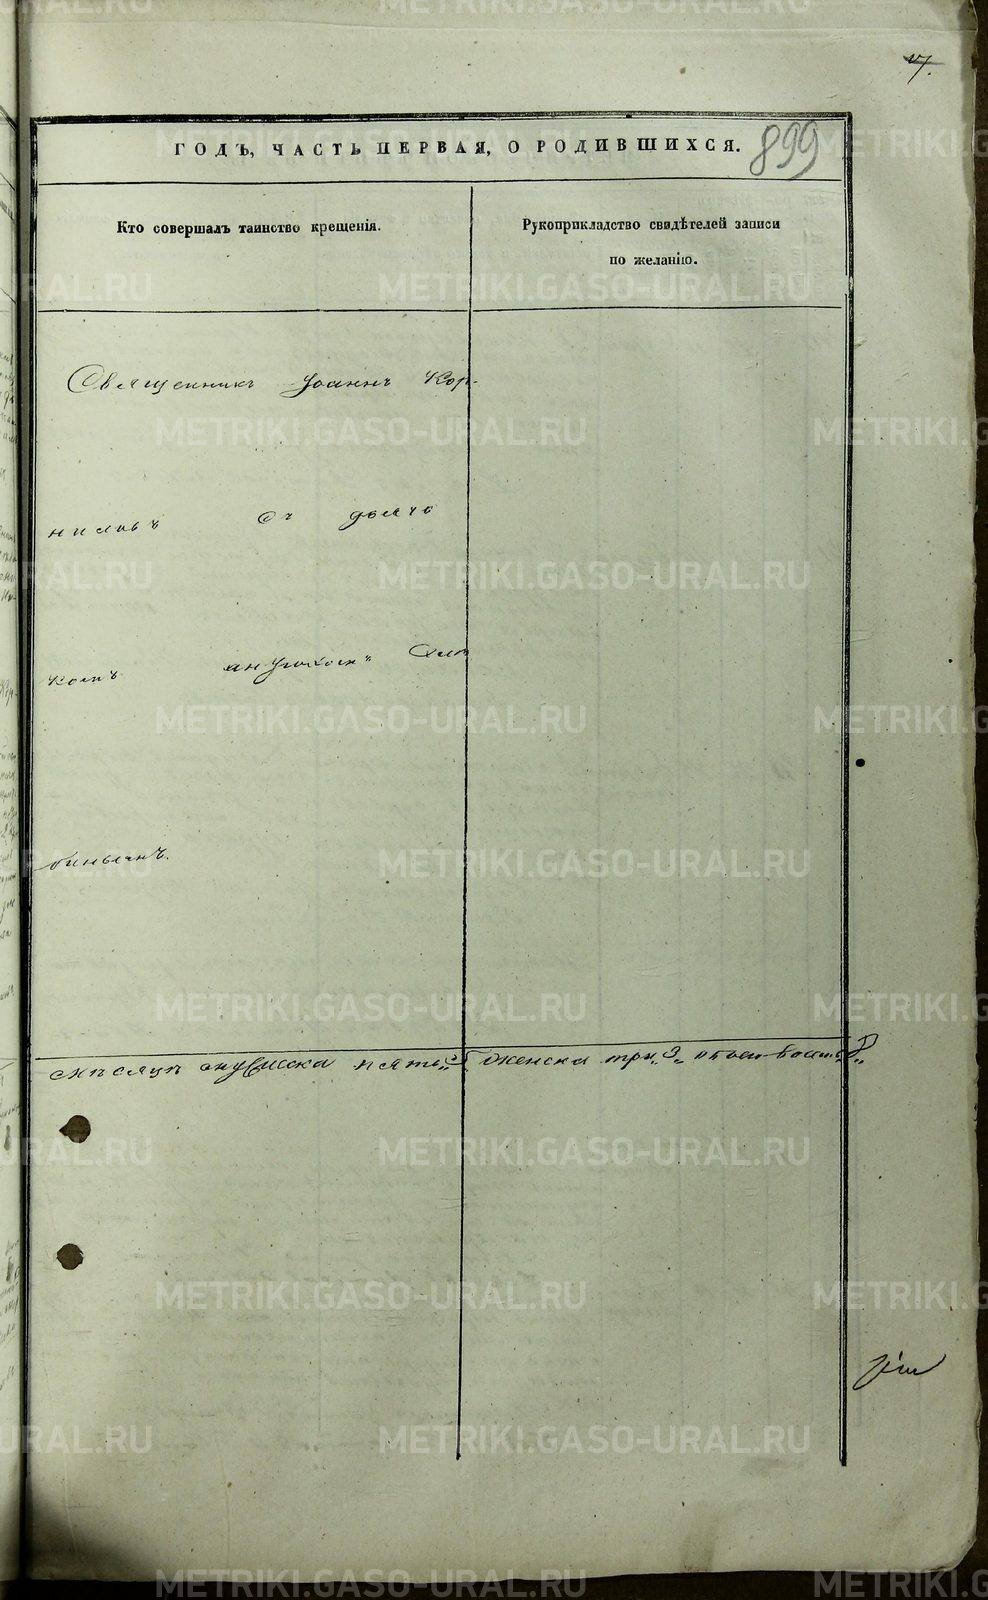 17.
899
ГОДЪ, ЧАСТЬ ПЕРВАЯ, О РОДИВШИХСЯ.
Кто совершалъ таинство крещенія.
Рукоприкладство свидѣтелей записи
по желанію.
Священникъ Іоаннъ Кор-
ниловъ съ дьяч
комъ
мѣсяцѣ мужска пять 5 женска три 3
METRIKI.GASO-URAL.RU